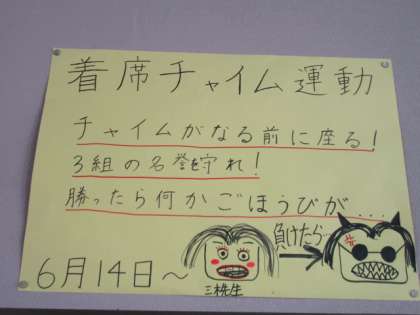 着席チャイム運動
チャイムがなる前に座る!
3組の名誉を守れ!
勝ったら何かごほうびが...
負けたら…
6月14日～
三株先生